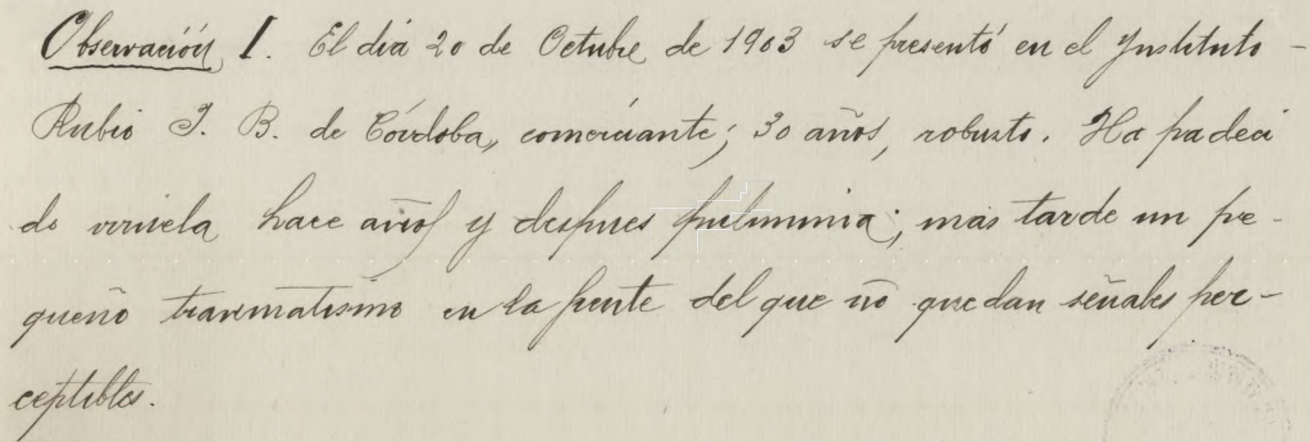 Observación I. El dia 20 de Octubre de 1903 se presentó en el Instituto -
Rubio J. B. de Córdoba, comerciante; 30 años, robusto. Ha padeci
do viruela hace años y despues pulmunia; más tarde un pe-
queño traumatismo en la frente del que no quedan señales per-
ceptibles.